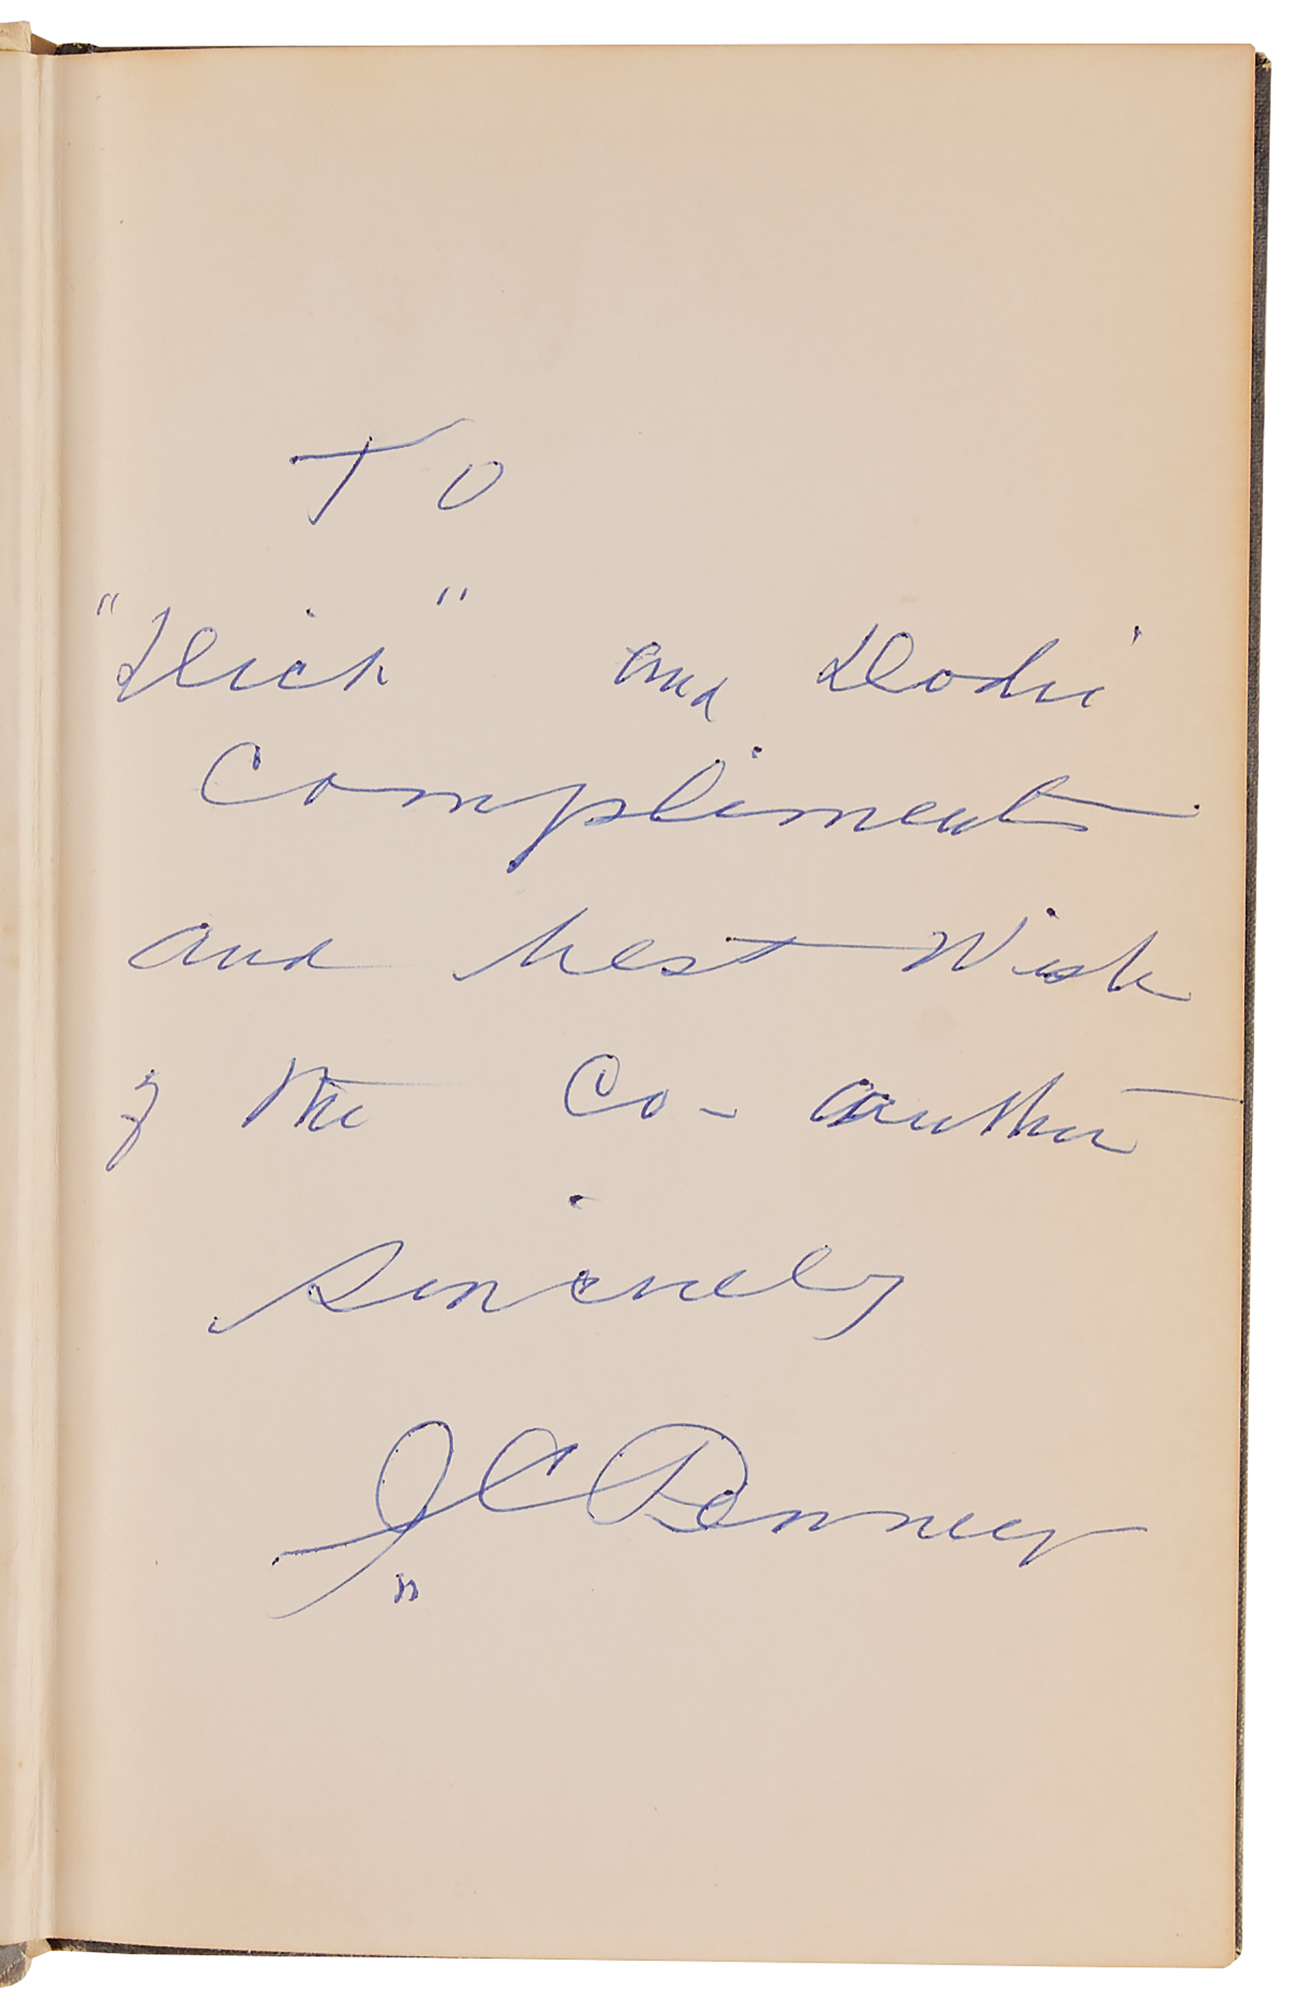 To
"Dick" and Dodi
Compliments
and best Wish
of the Co-author
Sincerely
JC Penney